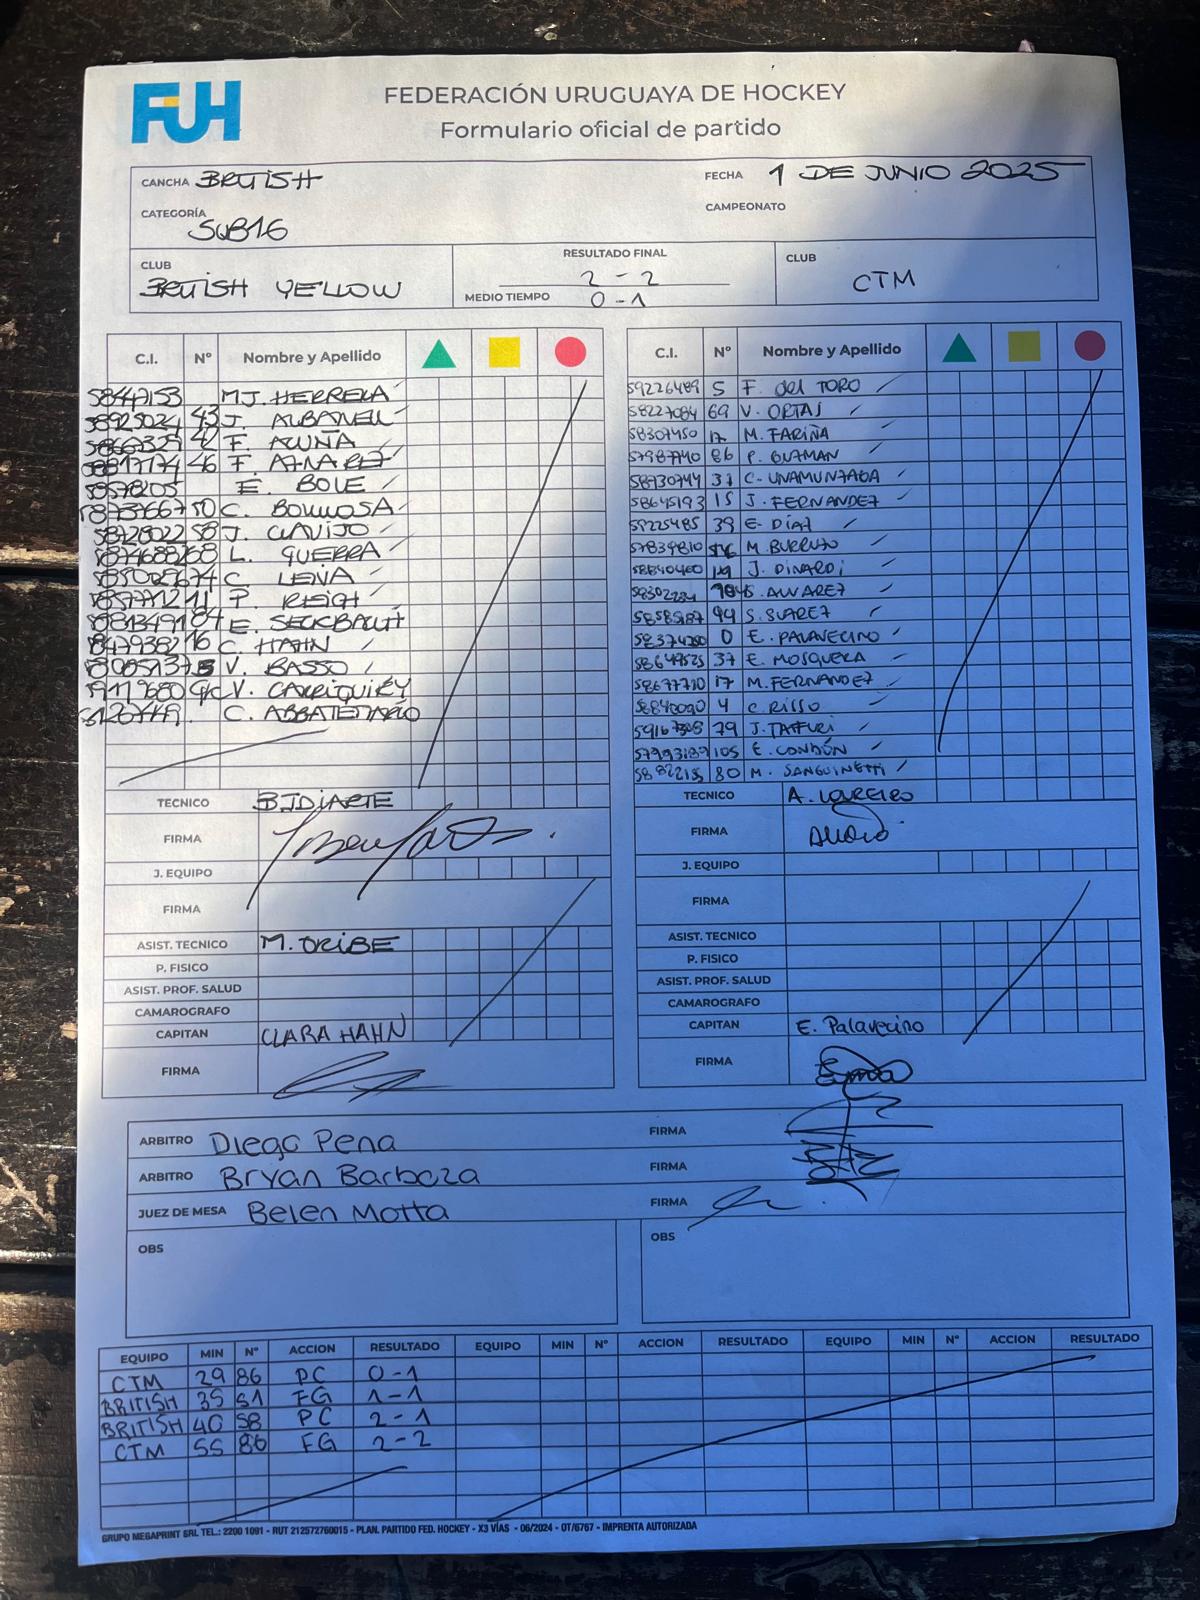 FUH
FEDERACIÓN URUGUAYA DE HOCKEY
Formulario oficial de partido
CANCHA BRITISH FECHA 1 DE JUNIO 2025
CATEGORÍA SUB16 CAMPEONATO
CLUB BRITISH YELLOW
RESULTADO FINAL 2 - 2
MEDIO TIEMPO 0 - 1
CLUB CTM
C.I. Nº Nombre y Apellido
MJ. HERRERA
43 J. ALBANELL
42 F. ACUÑA
46 F. AZNAREZ
E. BOLE
50 C.
58 J. CLAVIJO
68 L. GUERRA
C. LEIVA
11 P. REIGH
84 E.
16 C. HAHN
V. BASSO
V. CARRIQUIRY
C.
TECNICO
FIRMA
J. EQUIPO
FIRMA
ASIST. TECNICO M. ORIBE
P. FISICO
ASIST. PROF. SALUD
CAMAROGRAFO
CAPITAN CLARA HAHN
FIRMA
C.I. Nº Nombre y Apellido
59226489 5 F. del TORO
58227084 69 V.
58307450 M. FARIÑA
57987740 86 P. GUZMAN
58930744 C.
58645193 15 J. FERNANDEZ
59225485 39 E. DÍAZ
57839810 M.
J. DINARDI
ALVAREZ
58585187 99 S. SUAREZ
0 E. PALAVECINO
58649525 37 E. MOSQUERA
58677710 17 M. FERNANDEZ
58840090 4 C. RISSO
79 J. TAFFURI
57993189 105 E. CONDÓN
80 M. SANGUINETTI
TECNICO A. LOUREIRO
FIRMA
J. EQUIPO
FIRMA
ASIST. TECNICO
P. FISICO
ASIST. PROF. SALUD
CAMAROGRAFO
CAPITAN E. Palavecino
FIRMA
ARBITRO Diego Pena FIRMA
ARBITRO Bryan Barboza FIRMA
JUEZ DE MESA Belen Motta FIRMA
OBS OBS
EQUIPO MIN Nº ACCION RESULTADO EQUIPO MIN Nº ACCION RESULTADO EQUIPO MIN Nº ACCION RESULTADO
CTM 29 86 PC 0-1
BRITISH 35 51 FG 1-1
BRITISH 40 58 PC 2-1
CTM 55 86 FG 2-2
GRUPO MEGAPRINT SRL TEL.: 2200 1091 - RUT 212572760015 - PLAN. PARTIDO FED. HOCKEY - X3 VÍAS - 06/2024 - OT/6767 - IMPRENTA AUTORIZADA